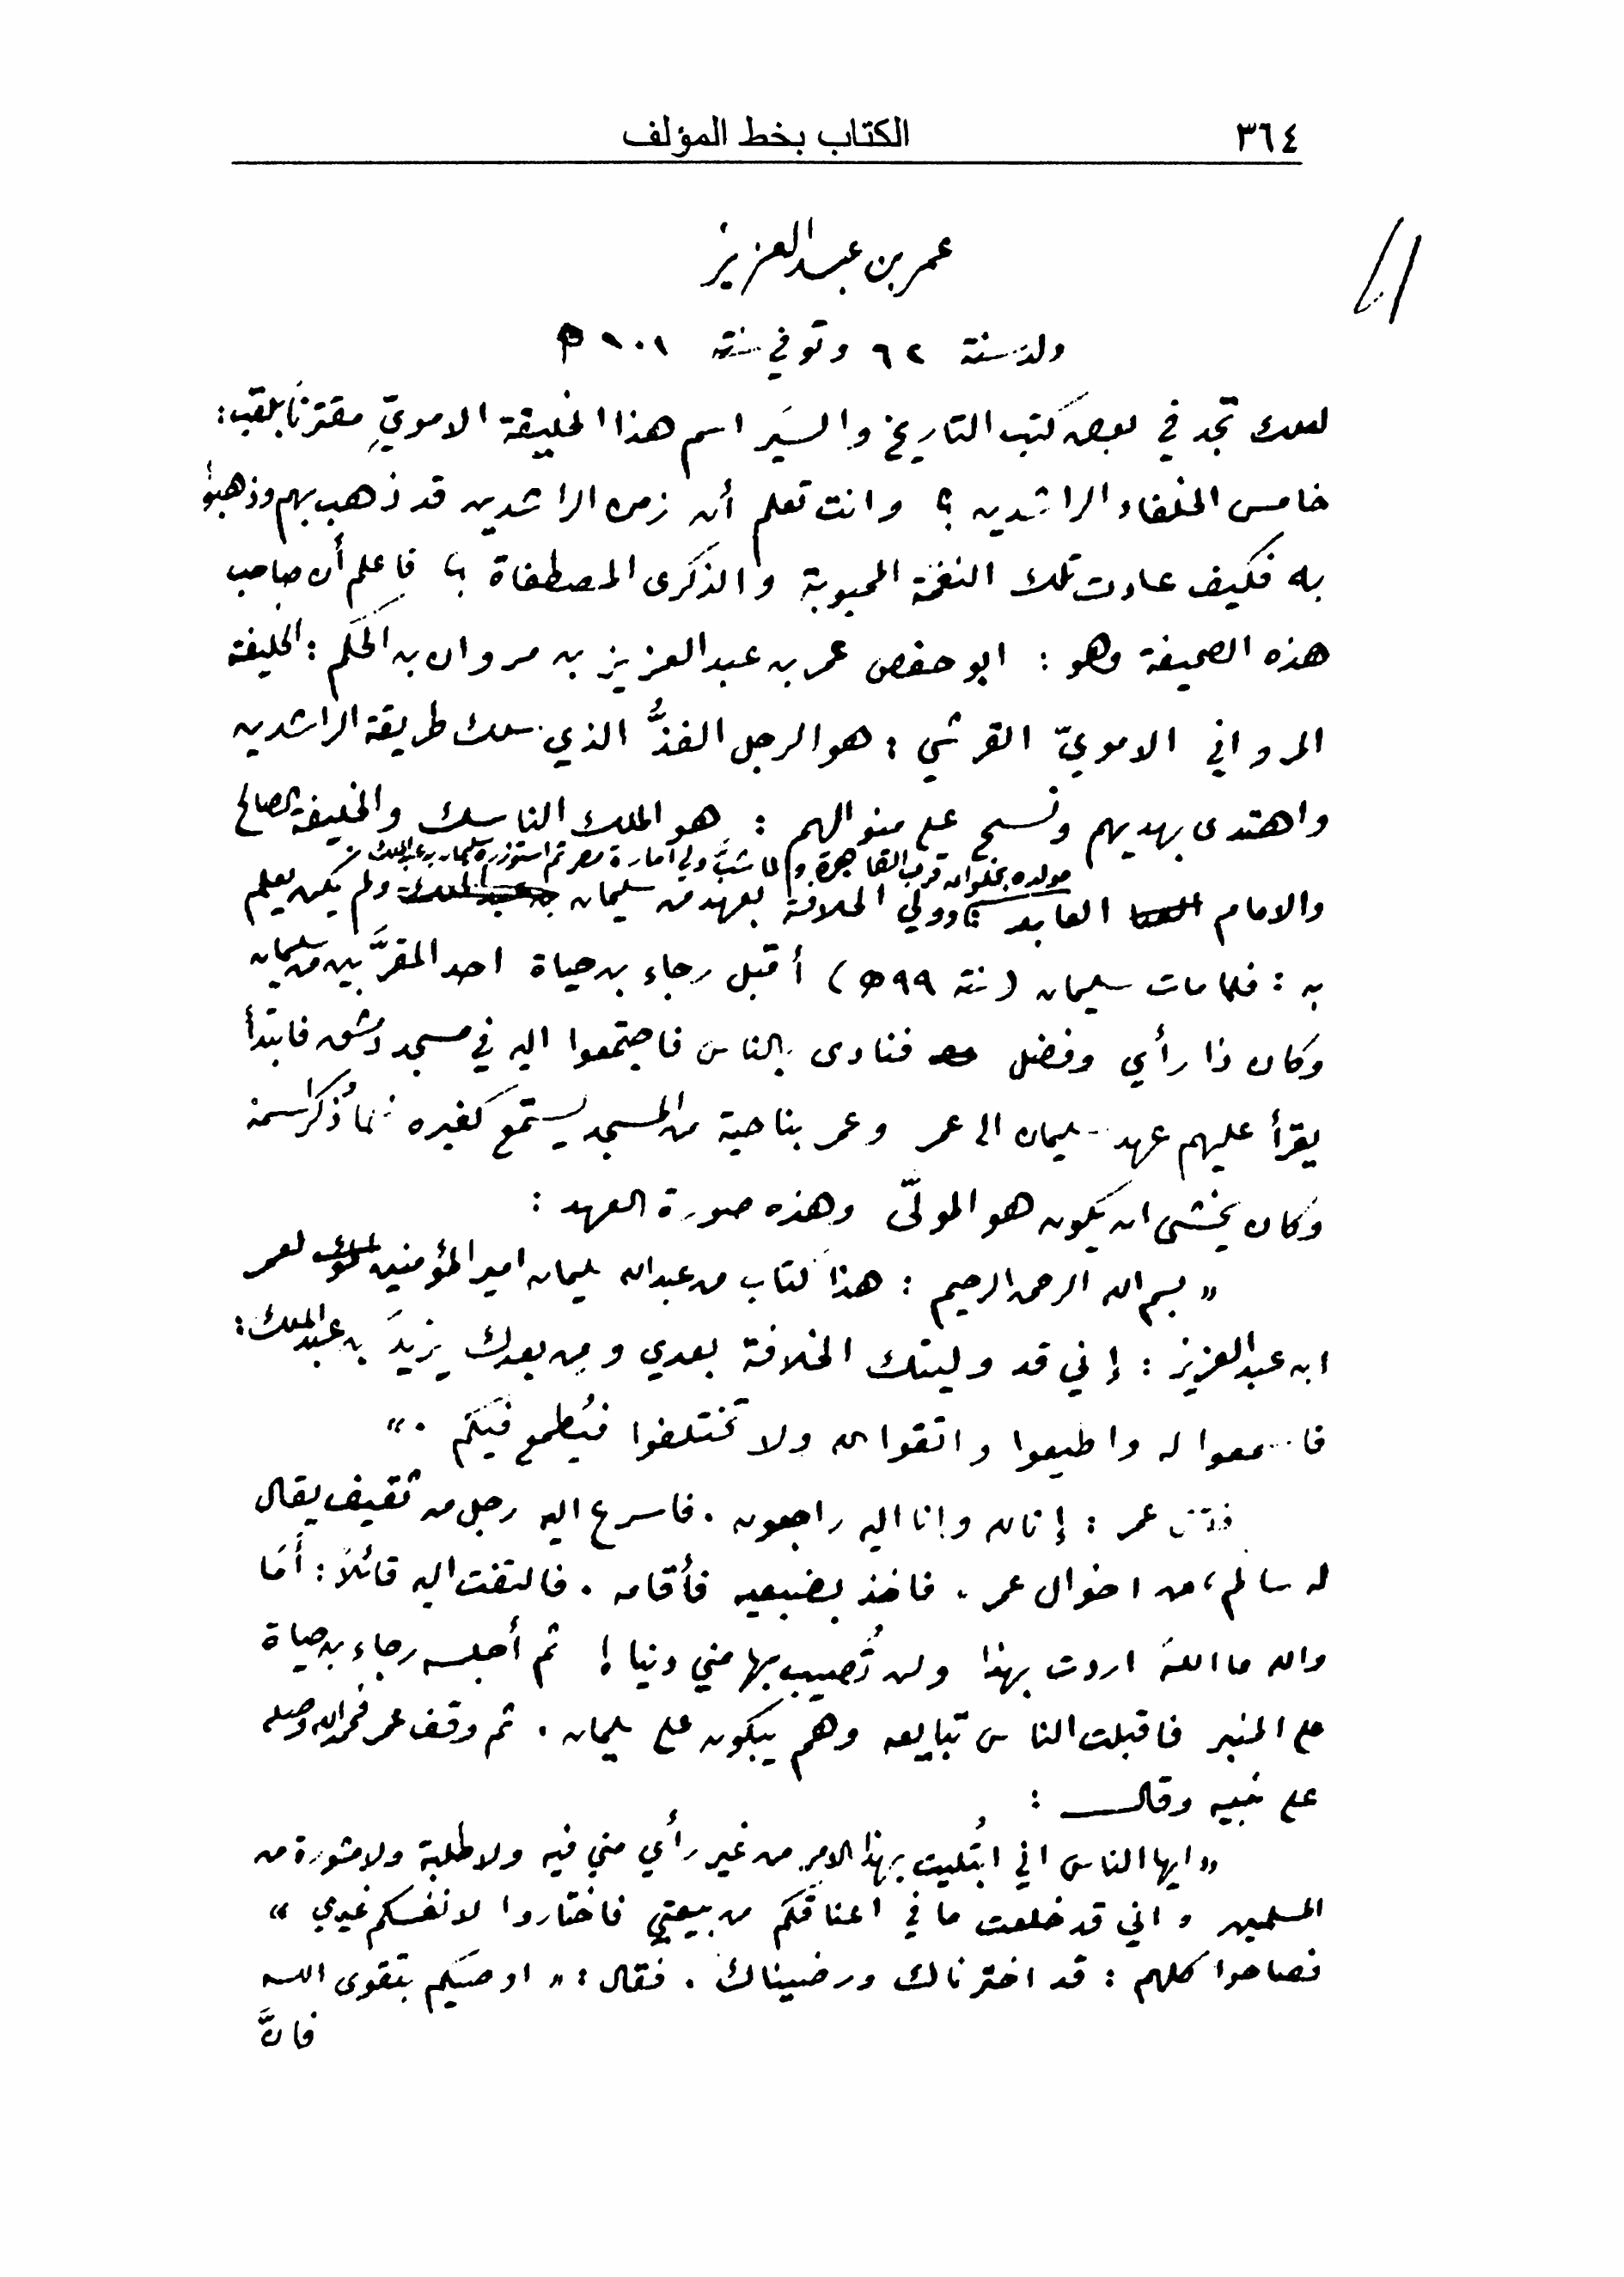 ٣٦٤
الكتاب بخط المؤلف
عمر بن عبد العزيز
ولد سنة ٦٢ وتوفي سنة ١٠١ ه
لعلك تجد في بعض كتب التاريخ والسيَر اسم هذا الخليفة الامويّ مقترنًا بلقب:
خامس الخلفاء الراشدين؟ وانت تعلم أن زمن الراشدين قد ذهب بهم وذهبوا
به فكيف عادت تلك النغمة المحبوبة والذكرى المصطفاة؟ فاعلم أن صاحب
هذه الصحيفة وهو: ابو حفص عمر بن عبد العزيز بن مروان بن الحكَم: الخليفة
المرواني الامويّ القرشي: هو الرجل الفذُّ الذي سلك طريقة الراشدين
واهتدى بهديهم ونسج على منوالهم: هو الملك الناسك والخليفة الصالح
مولده بحلوان قرب القاهرة. ولما شبَّ ولي امارة مصر ثم استوزره سليمان بن عبد الملك.
والامام العابد وولي الخلافة بعهد من سليمان بن عبد الملك ولم يكن يعلم
به: فلما مات سليمان (سنة ٩٩ ه) أقبل رجاء بن حياة احد المقرَّبين من سليمان
وكان ذا رأي وفضل فنادى بالناس فاجتمعوا اليه في مسجد دمشق فابتدأ
يقرأ عليهم عهد سليمان الى عمر وعمر بناحية من المسجد يستمع كغيره فلما ذُكر اسمه
وكان يخشى ان يكون هو المولّى وهذه صورة العهد:
« بسم الله الرحمن الرحيم: هذا كتاب من عبد الله سليمان امير المؤمنين لعمر
ابن عبد العزيز: إني قد وليتك الخلافة بعدي ومن بعدك يزيدَ بن عبد الملك:
فاسمعوا له واطيعوا واتقوا الله ولا تختلفوا فيُطمع فيكم. »
عمر: إنا لله وإنا اليه راجعون. فاسرع اليه رجل من ثقيف يقال
له سالم، من اخوال عمر. فاخذ بضبعيه فأقامه. فالتفت اليه قائلاً: أَمَا
والله ما اللهَ اردت بهذا ولن تُصيب بها مني دنيا! ثم أجلسه رجاء بن حياة
على المنبر فاقبلت الناس تبايعه وهم يبكون على سليمان. ثم وقف عمر فحمد الله وصلى
على نبيه وقال:
« ايها الناس اني ابتُليت بهذا الامر من غير رأي مني فيه ولا طلبة ولا مشورة من
المسلمين واني قد خلعت ما في اعناقكم من بيعتي فاختاروا لانفسكم غيري »
فصاحوا كلهم: قد اخترناك ورضيناك. فقال: « اوصيكم بتقوى الله
فانَّ